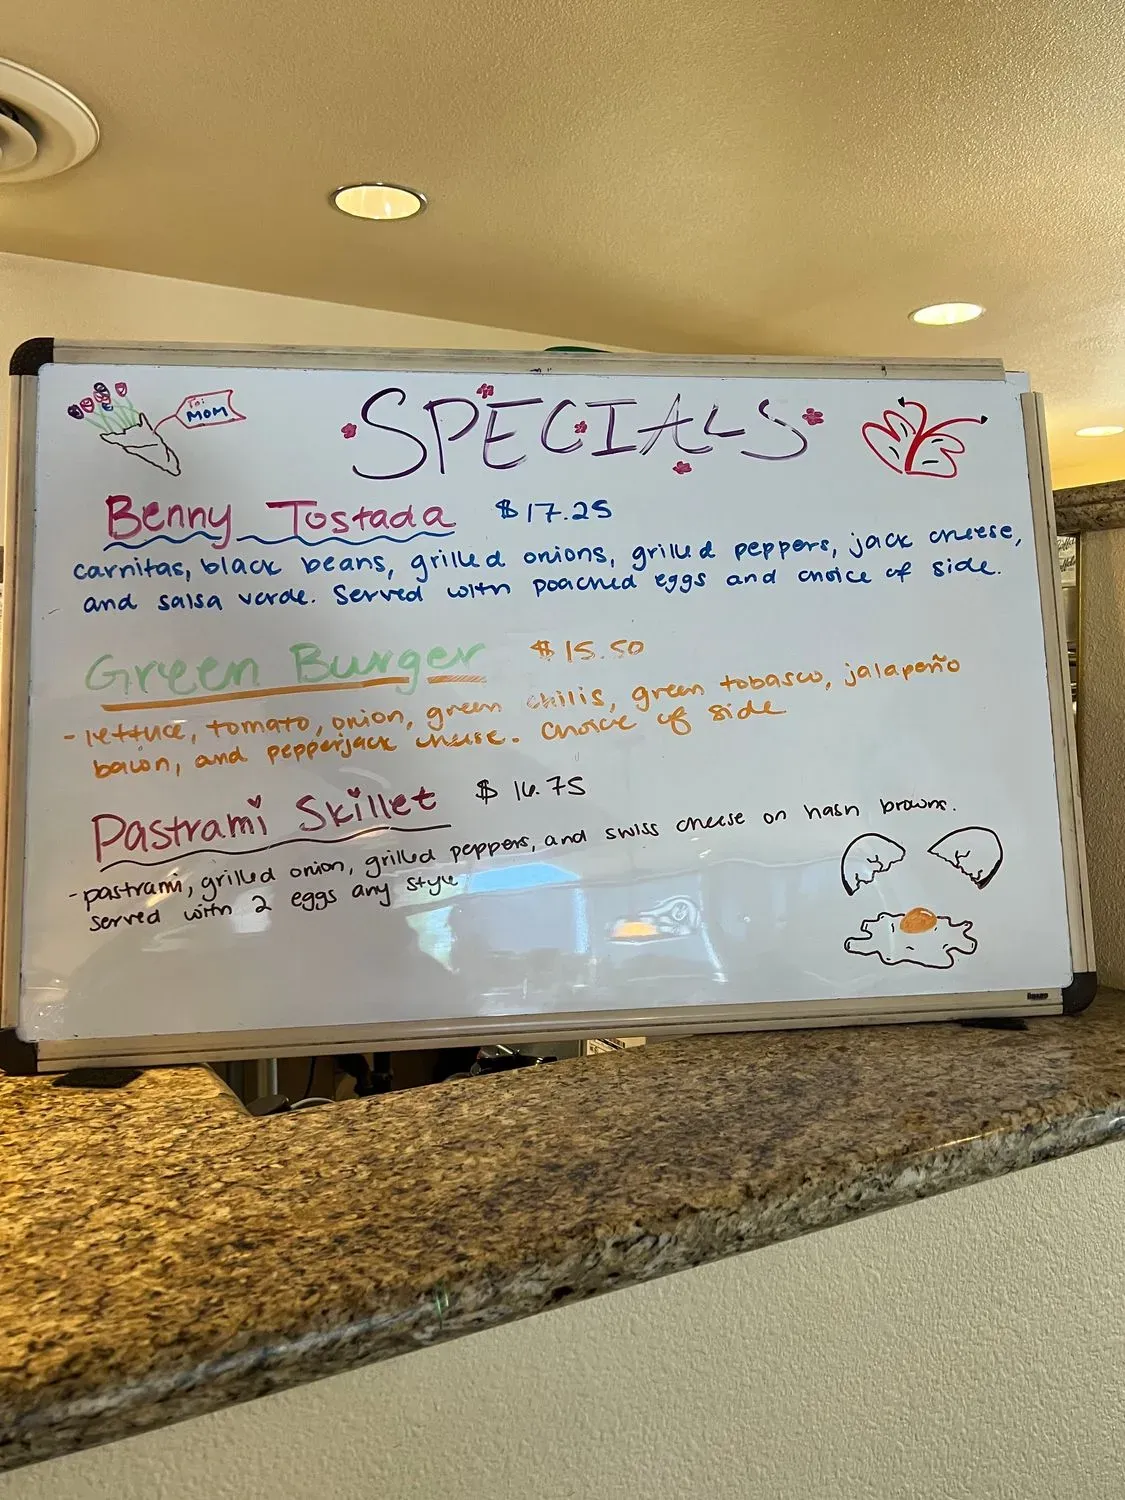 To:
MOM
SPECIALS
Benny Tostada $17.25
carnitas, black beans, grilled onions, grilled peppers, jack cheese,
and salsa verde. Served with poached eggs and choice of side.
Green Burger $15.50
- lettuce, tomato, onion, green chilis, green tobasco, jalapeño
bacon, and pepperjack cheese. Choice of side
Pastrami Skillet $16.75
- pastrami, grilled onion, grilled peppers, and swiss cheese on hash browns.
Served with 2 eggs any style